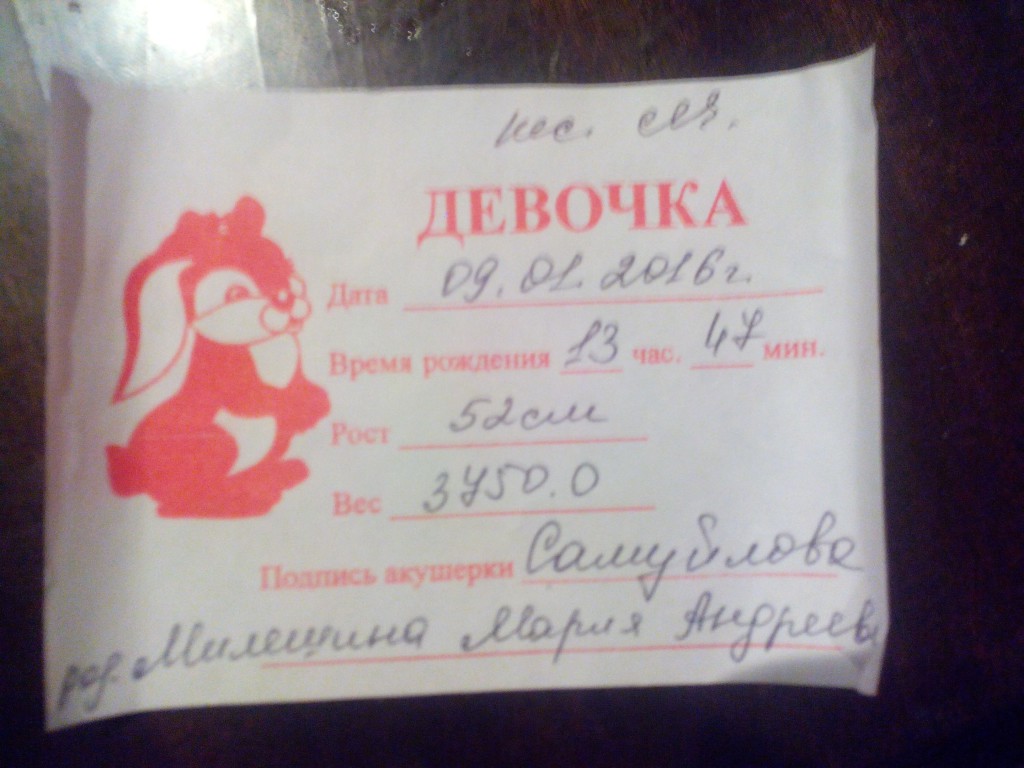 ДЕВОЧКА
Дата 09.01.2016г.
Время рождения 13 час. 47 мин.
Рост 52см
Вес 3750.0
Подпись акушерки Самуйлова
род. Милешина Мария Андреевн